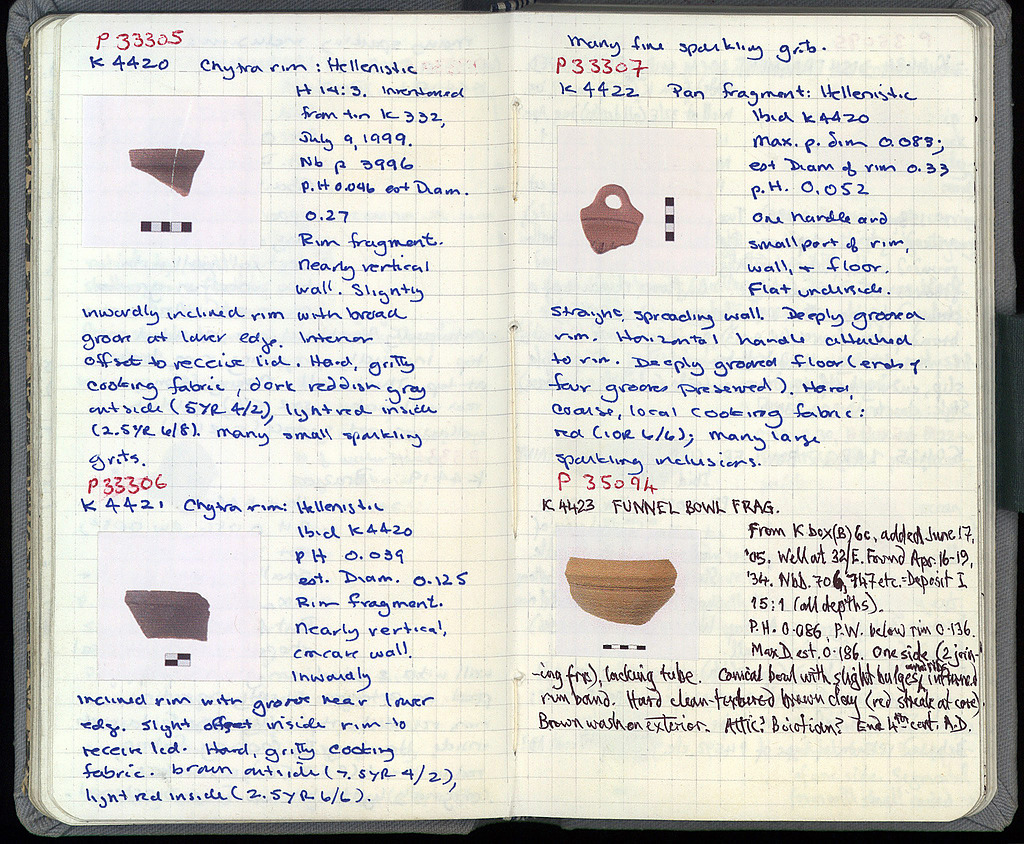 P 33305
K 4420 Chytra rim : Hellenistic
H 14:3. Inventoried
from tin K 332,
July 9, 1999.
Nb p 3996
P.H 0.046 est Diam.
0.27
Rim fragment.
nearly vertical
wall. Slightly
inwardly inclined rim with broad
groove at lower edge. Interior
offset to receive lid. Hard, gritty
cooking fabric, dark reddish gray
outside (5YR 4/2), light red inside
(2.5YR 6/8). many small sparkling
grits.
P33306
K 4421 Chytra rim: Hellenistic
Ibid K4420
P H 0.039
est. Diam. 0.125
Rim fragment.
Nearly vertical,
concave wall.
Inwardly
inclined rim with groove near lower
edge. Slight offset inside rim to
receive lid. Hard, gritty cooking
fabric. brown outside (7.5YR 4/2),
light red inside (2.5YR 6/6).
many fine sparkling grits.
P33307
K 4422 Pan fragment: Hellenistic
Ibid K4420
max. p. dim 0.083;
est Diam of rim 0.33
p. H. 0.052
One handle and
small part of rim,
wall, + floor.
Flat underside.
Straight, spreading wall. Deeply grooved
rim. Horizontal handle attached
to rim. Deeply grooved floor (ends of
four grooves preserved). Hard,
coarse, local cooking fabric:
red (10R 6/6); many large
sparkling inclusions.
P 35094
K 4423 FUNNEL BOWL FRAG.
From K box(B) 6c, added June 17,
'05. Well at 32/E. Found Apr. 16-19,
'34. Nbd. 706, 747 etc. = Deposit I
15:1 (all depths).
P.H. 0.086, P.W. below rim 0.136.
Max D est. 0.186. One side (2 join-
-ing frgs), lacking tube. Conical bowl with slight bulges, inturned
rim band. Hard clean-textured brown clay (red streak at core).
Brown wash on exterior. Attic? Boiotian? End 4th cent. A.D.